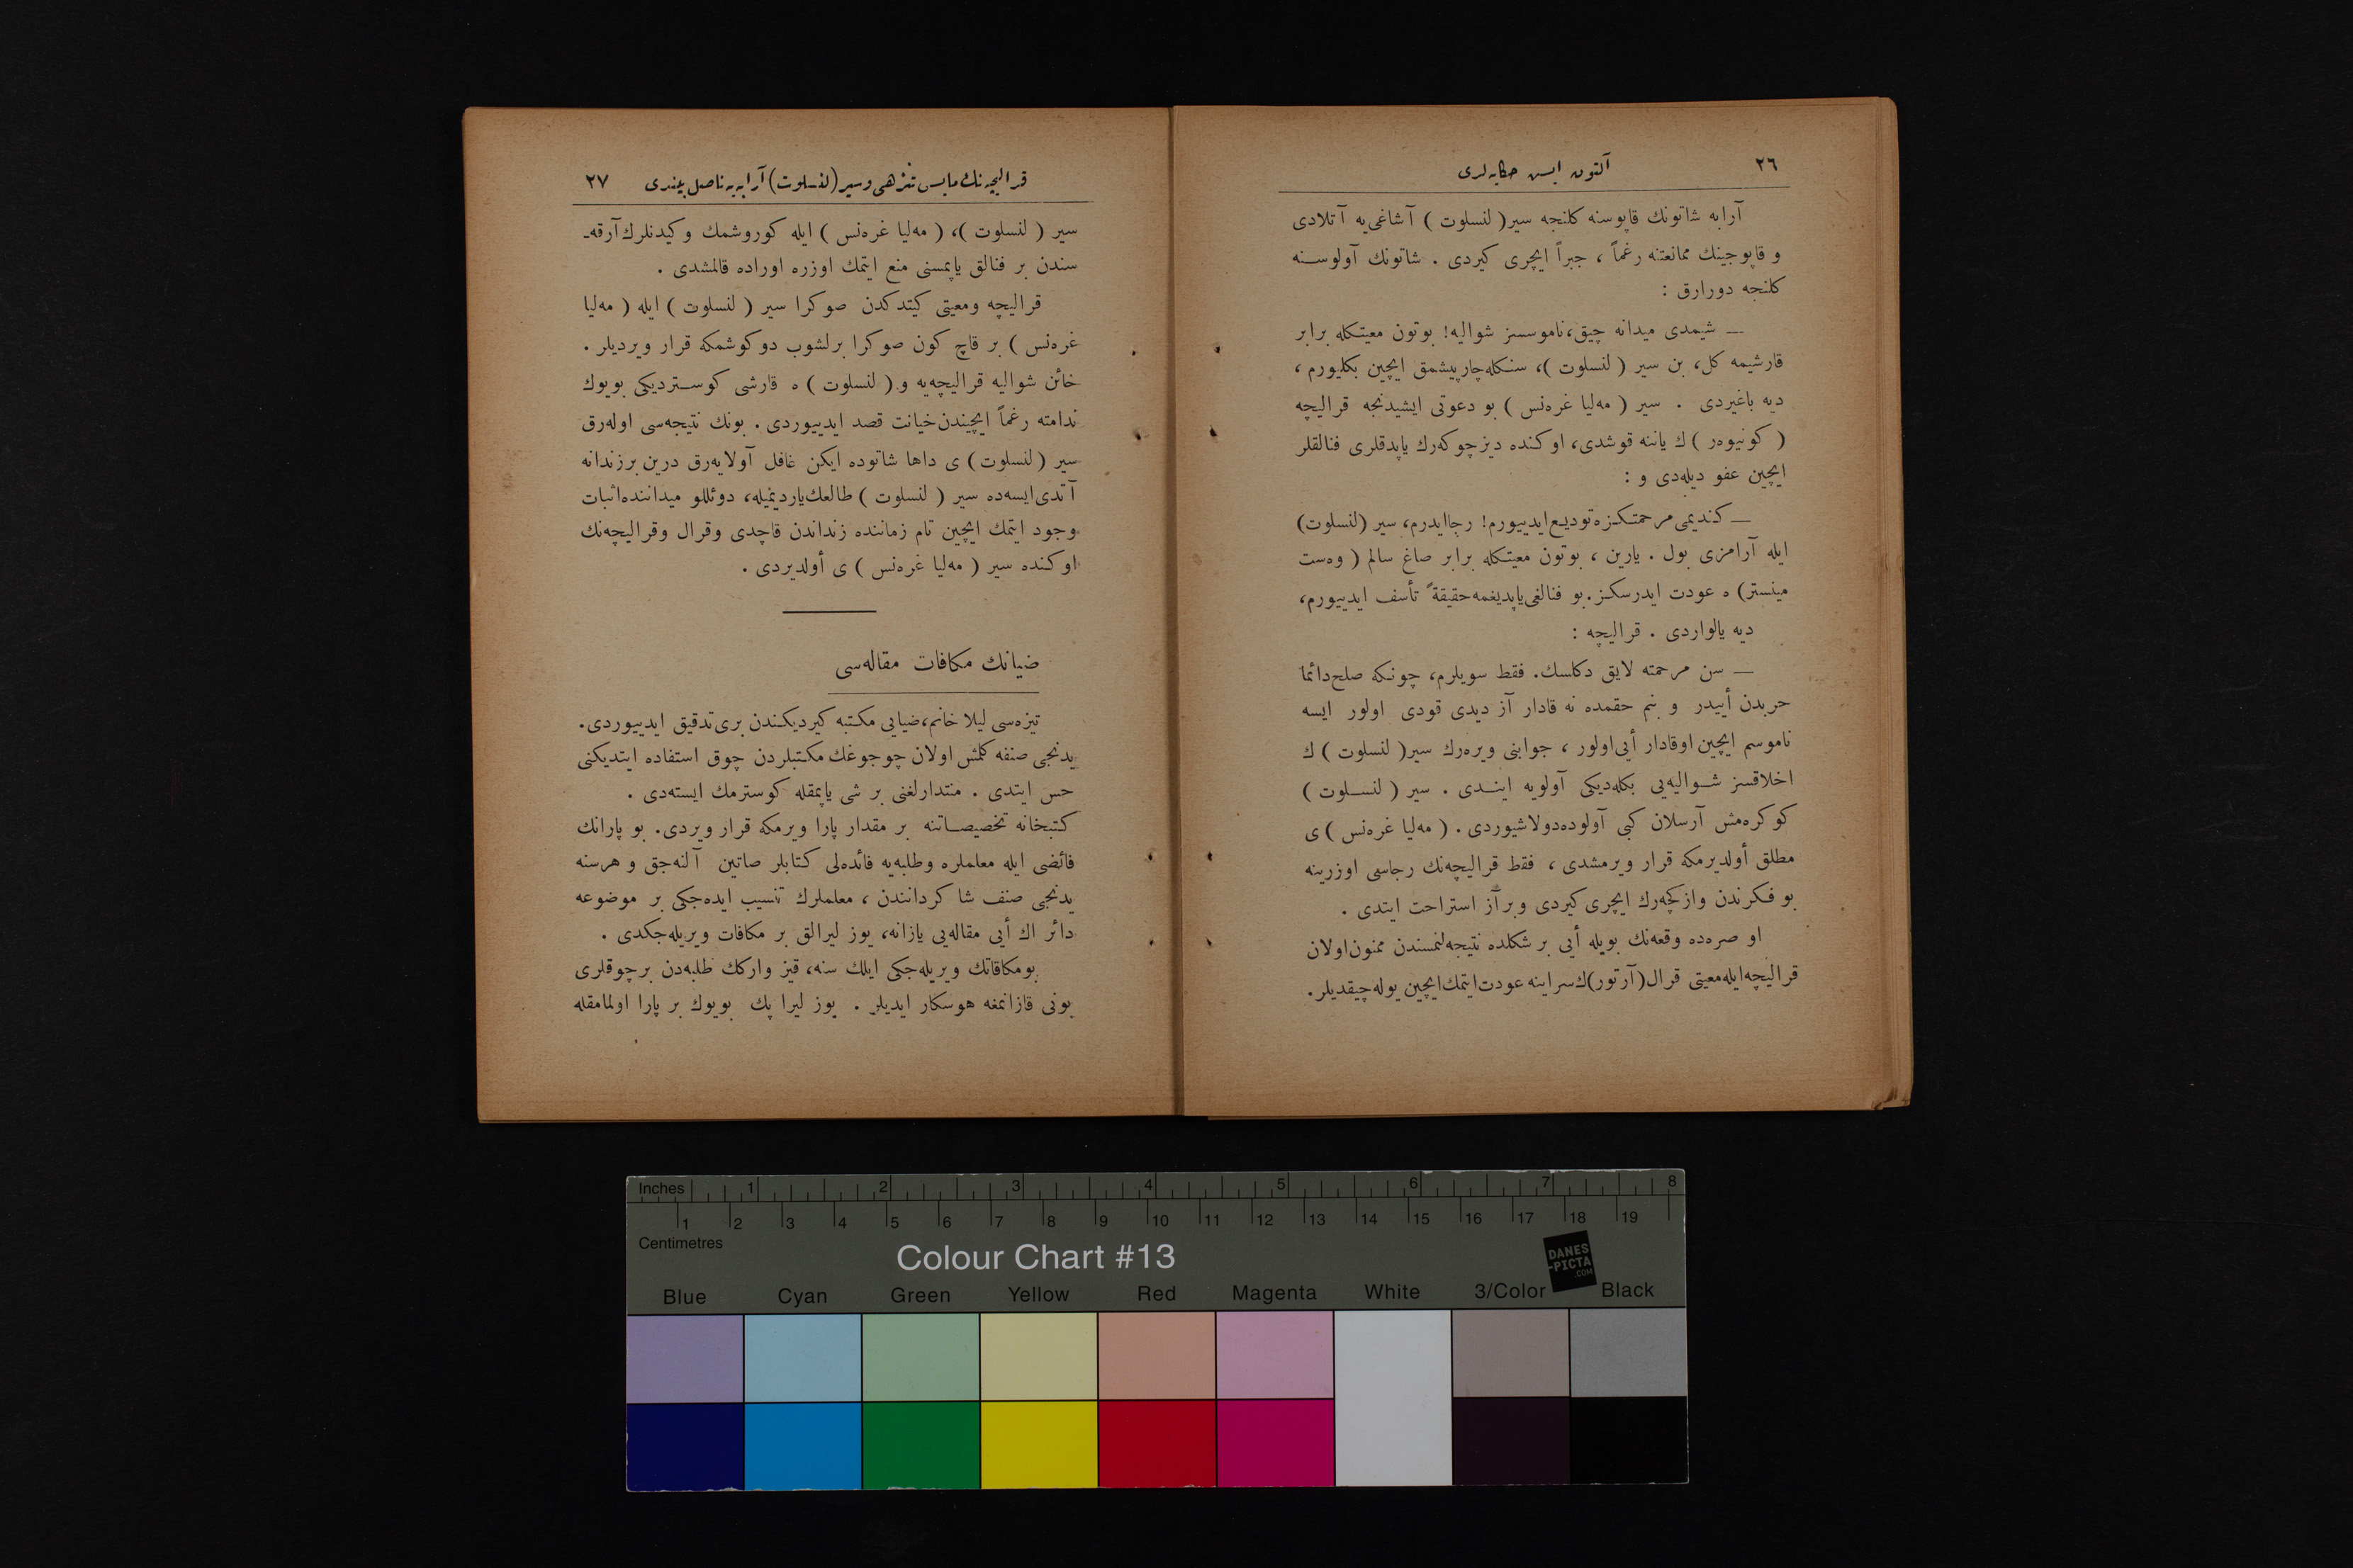 ٢٦
آلتون ایسن حكایه‌لری
آرابه شاتونك قاپوسنه كلنجه سیر ( لنسلوت ) آشاغی‌یه آتلادی
و قاپوجینك ممانعتنه رغماً ، جبراً ایچری كیردی . شاتونك آولوسنه
كلنجه دورارق :
— شیمدی میدانه چیق، ناموسسز شوالیه! بوتون معیتكله برابر
قارشیمه كل، بن سیر ( لنسلوت )، سنكله چارپیشمق ایچین بكلیورم ،
دیه باغیردی . سیر ( مه‌لیا غره‌نس ) بو دعوتی ایشیدنجه قرالیچه
( كونیوه‌ر ) ك یاننه قوشدی، اوكنده دیز چوكه‌رك یاپدقلری فنالقلر
ایچین عفو دیله‌دی و :
— كندیمی مرحمتكزه تودیع ایدییورم! رجا ایدرم، سیر (لنسلوت)
ایله آرامزی بول . یارین ، بوتون معیتكله برابر صاغ سالم ( وه‌ست
مینستر) ه عودت ایدرسكز. بو فنالغی یاپدیغمه حقیقةً تأسف ایدییورم،
دیه یالواردی . قرالیچه :
— سن مرحمته لایق دكلسك. فقط سویلرم، چونكه صلح دائما
حربدن أییدر و بنم حقمده نه قادار آز دیدی قودی اولور ایسه
ناموسم ایچین اوقادار أیی اولور ، جوابنی ویره‌رك سیر( لنسلوت ) ك
اخلاقسز شوالیه‌یی بكله‌دیكی آولویه ایندی . سیر ( لنسلوت )
كوكره‌مش آرسلان كبی آولوده دولاشیوردی . ( مه‌لیا غره‌نس ) ی
مطلق أولدیرمكه قرار ویرمشدی ، فقط قرالیچه‌نك رجاسی اوزرینه
بو فكرندن وازكچه‌رك ایچری كیردی و بر آز استراحت ایتدی .
او صره‌ده وقعه‌نك بویله أیی بر شكلده نتیجه‌لنمسندن ممنون اولان
قرالیچه ایله معیتی قرال (آرتور) ك سراینه عودت ایتمك ایچین یوله چیقدیلر.
قرالیچه‌نك مایس تنزهی و سیر (لنسلوت) آرابه‌یه ناصل بیندی
٢٧
سیر ( لنسلوت )، ( مه‌لیا غره‌نس ) ایله كوروشمك و كیدنلرك آرقه‌ـ
سندن بر فنالق یاپمسنی منع ایتمك اوزره اوراده قالمشدی .
قرالیچه ومعیتی كیتدكدن صوكرا سیر ( لنسلوت ) ایله ( مه‌لیا
غره‌نس ) بر قاچ كون صوكرا برلشوب دوكوشمكه قرار ویردیلر .
خائن شوالیه قرالیچه‌یه و ( لنسلوت ) ه قارشی كوستردیكی بویوك
ندامته رغماً ایچیندن خیانت قصد ایدییوردی . بونك نتیجه‌سی اوله‌رق
سیر (لنسلوت) ی داها شاتوده ایكن غافل آولایه‌رق درین بر زندانه
آتدی ایسه‌ده سیر ( لنسلوت ) طالعك یاردیمیله، دوئللو میداننده اثبات
وجود ایتمك ایچین تام زماننده زنداندن قاچدی وقرال وقرالیچه‌نك
اوكنده سیر ( مه‌لیا غره‌نس ) ی أولدیردی .
ضیانك مكافات مقاله‌سی
تیزه‌سی لیلا خانم، ضیایی مكتبه كیردیكندن بری تدقیق ایدییوردی.
یدنجی صنفه كلمش اولان چوجوغك مكتبلردن چوق استفاده ایتدیكنی
حس ایتدی . منتدارلغنی بر شی یاپمقله كوسترمك ایسته‌دی .
كتبخانه تخصیصاتنه بر مقدار پارا ویرمكه قرار ویردی. بو پارانك
فائضی ایله معلملره وطلبه‌یه فائده‌لی كتابلر صاتین آلنه‌جق و هر سنه
یدنجی صنف شاكرداننندن ، معلملرك تنسیب ایده‌جكی بر موضوعه
دائر اك أیی مقاله‌یی یازانه، یوز لیرالق بر مكافات ویریله‌جكدی .
بو مكافاتك ویریله‌جكی ایلك سنه، قیز واركك طلبه‌دن بر چوقلری
بونی قازانمغه هوسكار ایدیلر . یوز لیرا پك بویوك بر پارا اولمامقله
Inches 1 2 3 4 5 6 7 8
1 2 3 4 5 6 7 8 9 10 11 12 13 14 15 16 17 18 19
Centimetres
Colour Chart #13
DANES
-PICTA
.COM
Blue Cyan Green Yellow Red Magenta White 3/Color Black